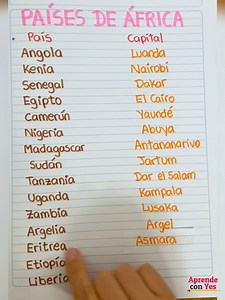 PAÍSES DE ÁFRICA
País Capital
Angola Luanda
Kenia Nairobi
Senegal Dakar
Egipto El Cairo
Camerún Yaundé
Nigeria Abuya
Madagascar Antananarivo
Sudán Jartum
Tanzania Dar el Salam
Uganda Kampala
Zambia Lusaka
Argelia Argel
Eritrea Asmara
Etiopía
Liberia
Aprende
con Yes